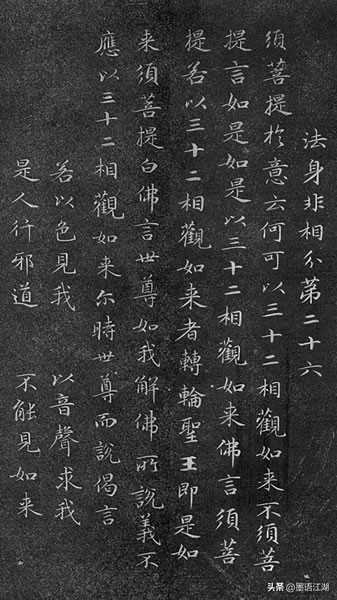 法身非相分第二十六
須菩提於意云何可以三十二相觀如来不須菩
提言如是如是以三十二相觀如来佛言須菩
提若以三十二相觀如来者轉輪聖王即是如
来須菩提白佛言世尊如我解佛所說義不
應以三十二相觀如来尔時世尊而說偈言
若以色見我 以音聲求我
是人行邪道 不能見如来
头条 @墨语江湖